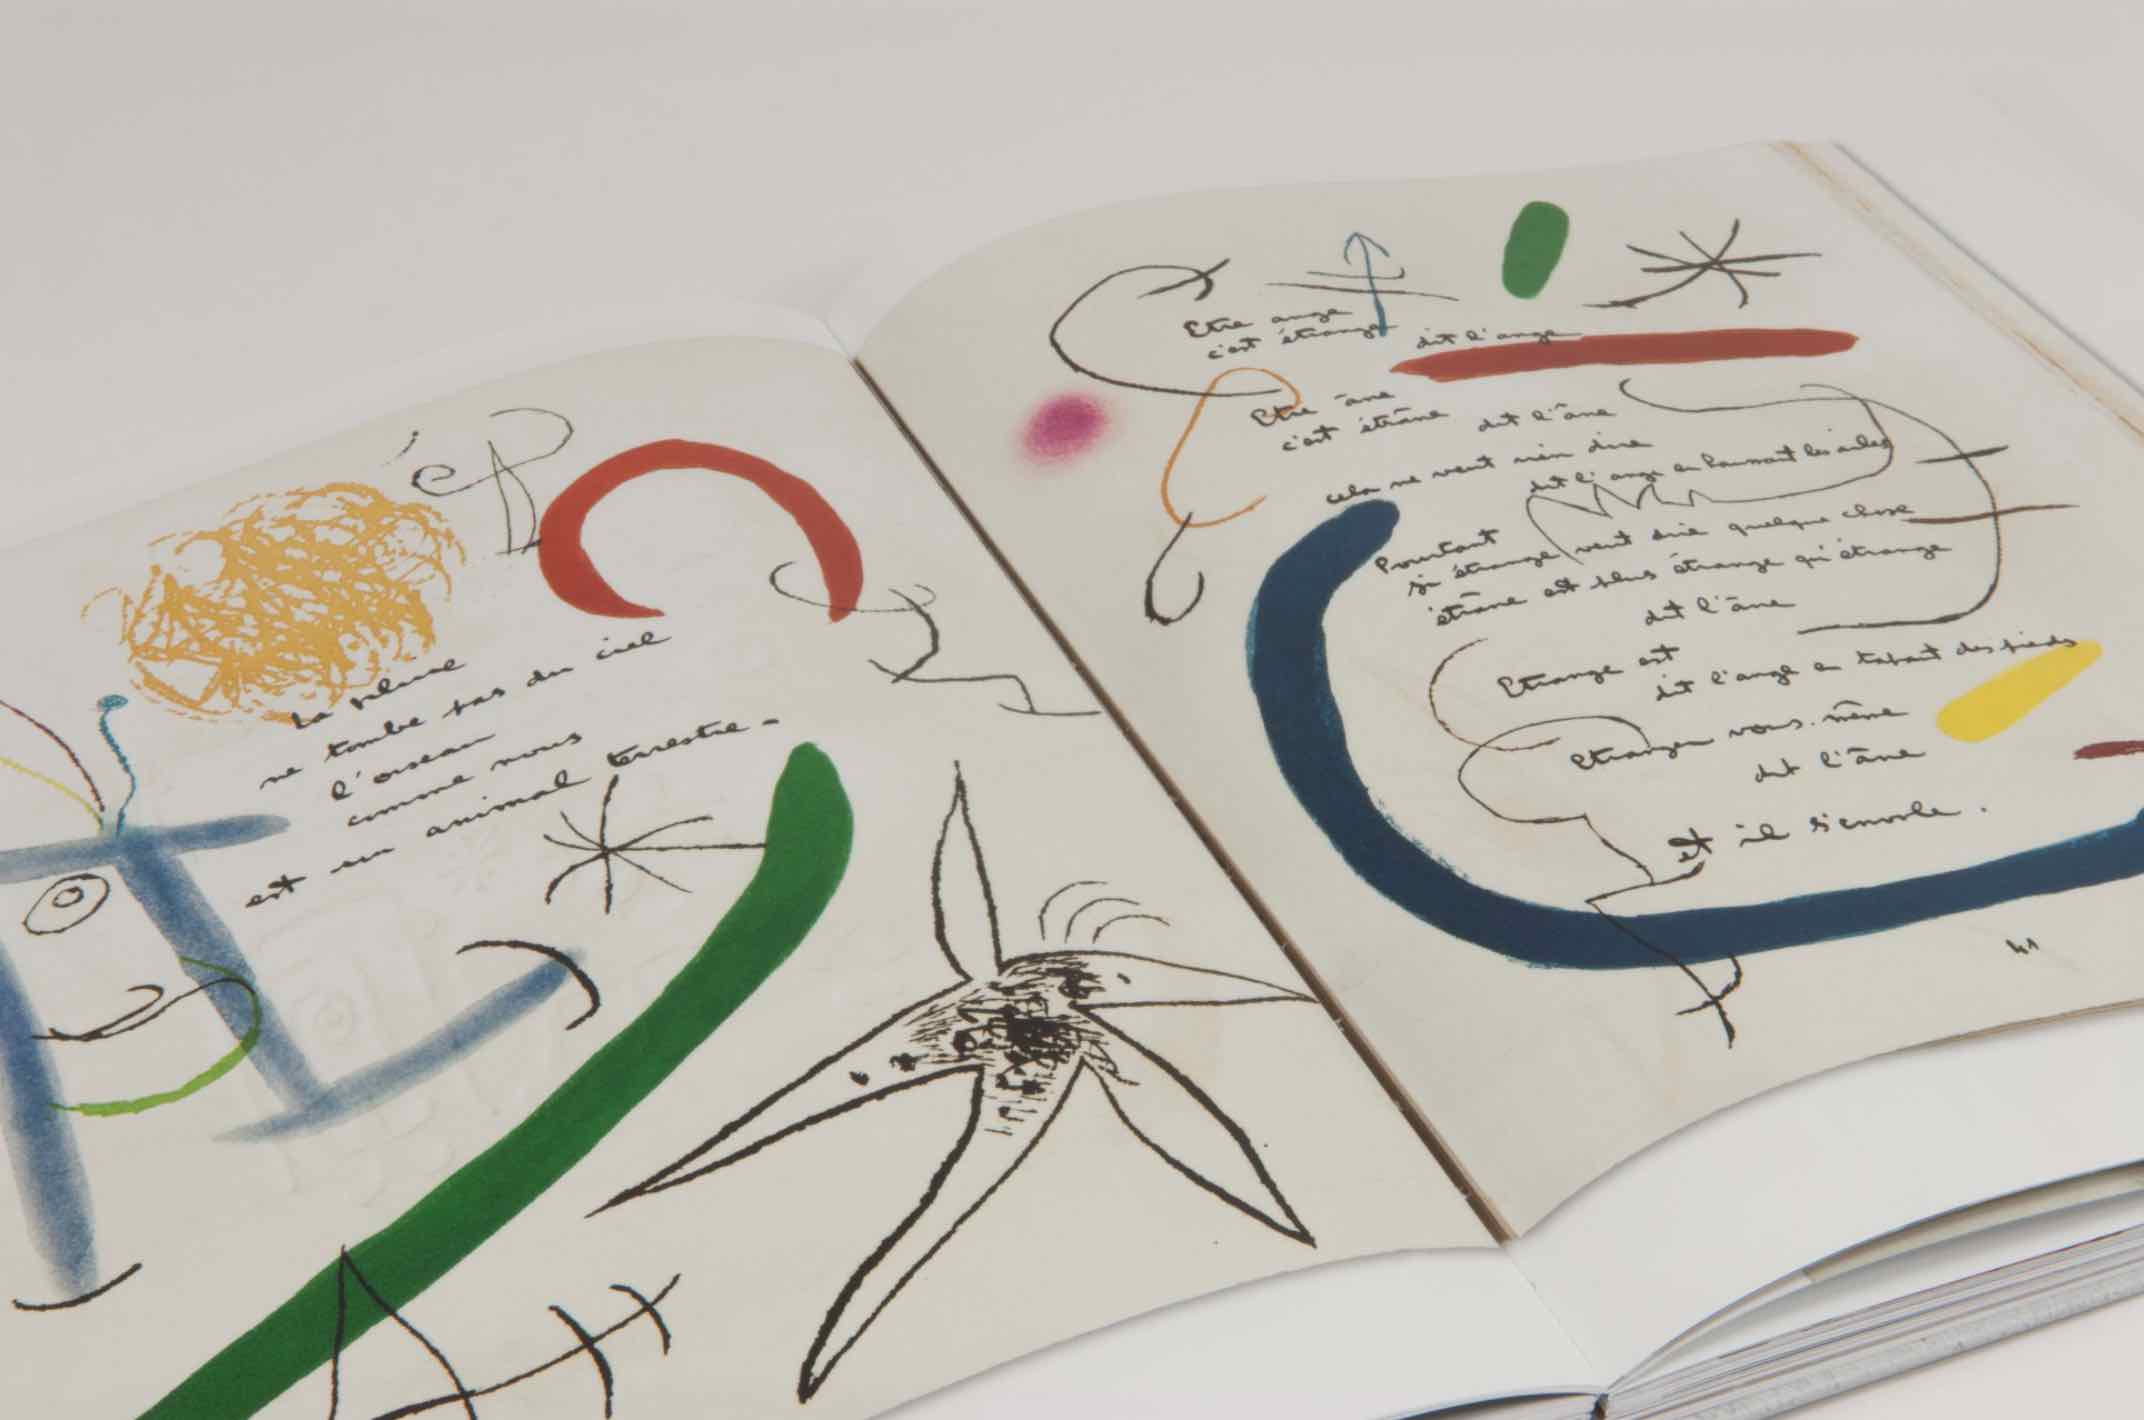 La pluie
ne tombe pas du ciel
l'oiseau
comme nous
est un animal terrestre -
Etre ange
c'est étrange dit l'ange
Etre âne
c'est étrâne dit l'âne
cela ne veut rien dire
dit l'ange en haussant les ailes
Pourtant
si étrange veut dire quelque chose
étrâne est plus étrange qu'étrange
dit l'âne
Etrange est
dit l'ange en tapant des pieds
Etranger vous-même
dit l'âne
et il s'envole.
41